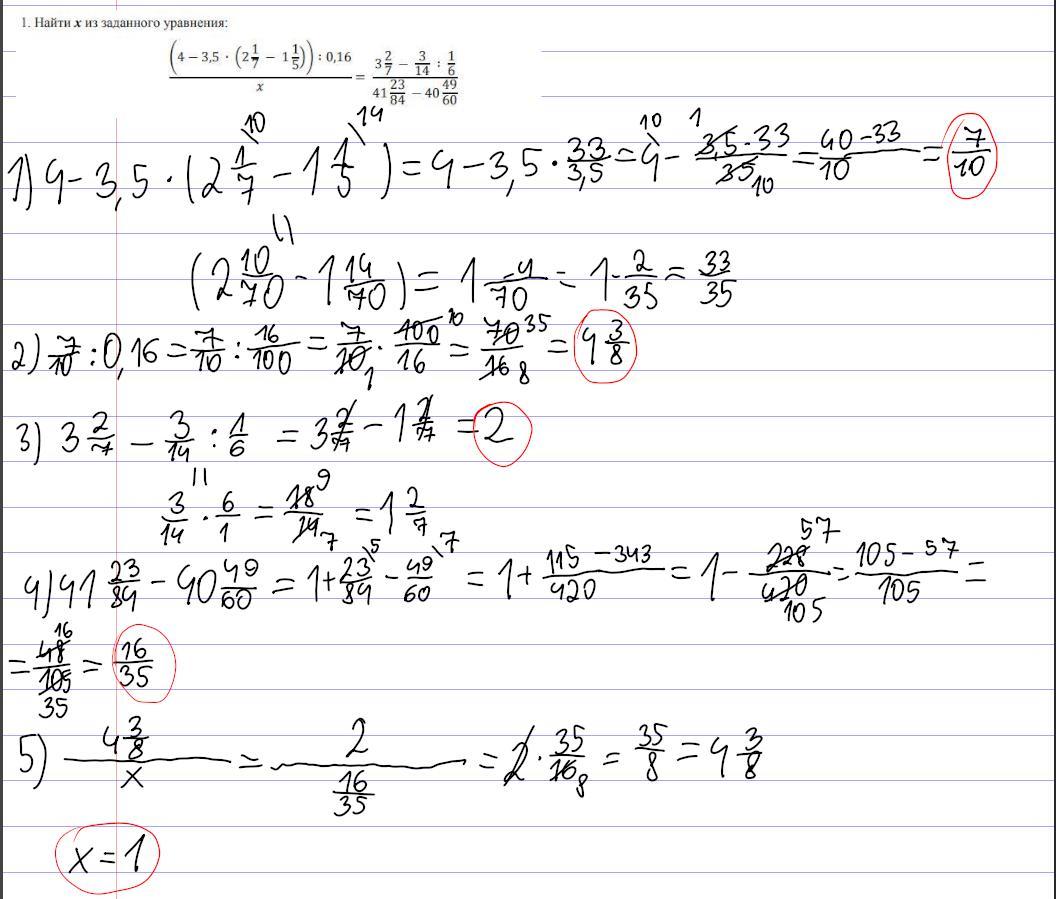 1. Найти x из заданного уравнения:
((4 − 3,5 · (2 1/7 − 1 1/5)) : 0,16)/x = (3 2/7 − 3/14 : 1/6)/(41 23/84 − 40 49/60)
1) 4 − 3,5 · (2 1/7 \10 − 1 1/5 \14) = 4 − 3,5 · 33/3,5 = 4 \10 − 3,5·33/35 1 10 = 40−33/10 = 7/10
(2 10/70 − 1 14/70) = 1 −4/70 = 1 − 2/35 = 33/35
2) 7/10 : 0,16 = 7/10 : 16/100 = 7/10 1 · 100/16 10 = 70/16 35 8 = 4 3/8
3) 3 2/7 − 3/14 : 1/6 = 3 2/7 − 1 2/7 = 2
3/14 · 6/1 = 18/14 9 7 = 1 2/7
4) 41 23/84 − 40 49/60 = 1 + 23/84 \5 − 49/60 \7 = 1 + 115 − 343/420 = 1 − 228/420 57 105 = 105 − 57/105 =
= 48/105 16 35 = 16/35
5) 4 3/8 / x = 2 / 16/35 = 2 · 35/16 8 = 35/8 = 4 3/8
x = 1